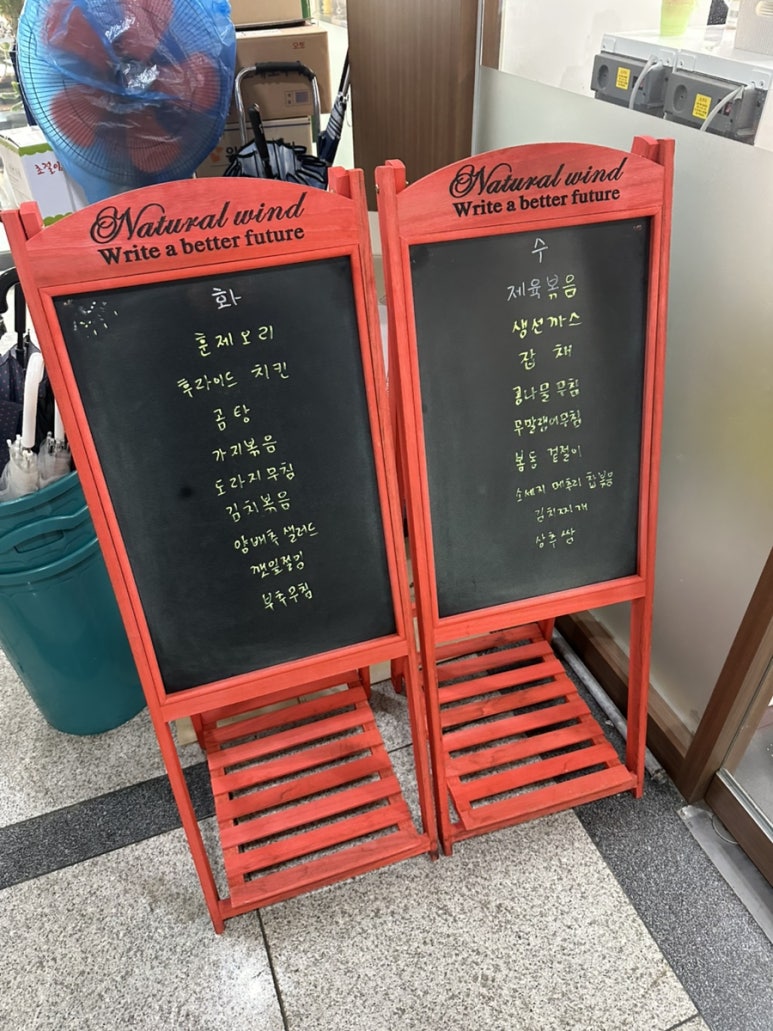 Natural wind
Write a better future
화
훈제오리
후라이드 치킨
곰탕
가지볶음
도라지무침
김치볶음
양배추 샐러드
깻잎절임
부추무침
Natural wind
Write a better future
수
제육볶음
생선까스
잡채
콩나물무침
무말랭이무침
봄동 겉절이
소세지 메추리 찹볶음
김치찌개
상추쌈